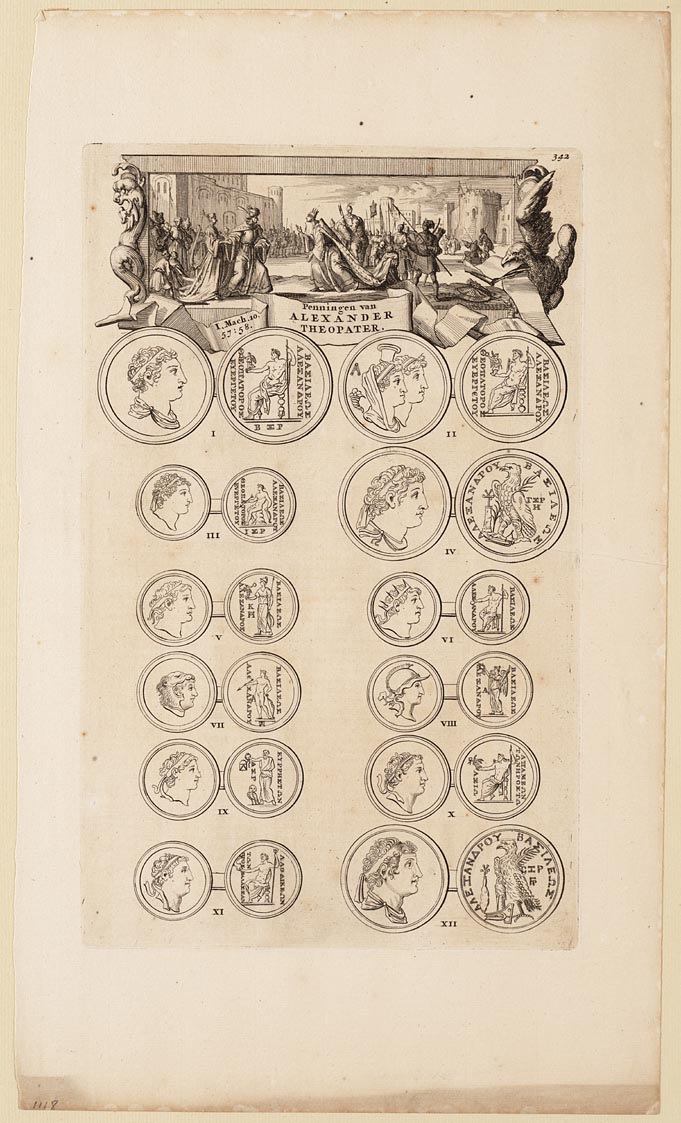 342
I. Mach. 10.
57:58.
Penningen van
ALEXANDER
THEOPATER.
ΒΑΣΙΛΕΩΣ
ΑΛΕΞΑΝΔΡΟΥ
ΘΕΟΠΑΤΟΡΟΣ
ΕΥΕΡΓΕΤΟΥ
ΒΞΡ
I
Λ
ΒΑΣΙΛΕΩΣ
ΑΛΕΞΑΝΔΡΟΥ
ΘΕΟΠΑΤΟΡΟΣ
ΕΥΕΡΓΕΤΟΥ
II
ΒΑΣΙΛΕΩΣ
ΑΛΕΞΑΝΔΡΟΥ
ΘΕΟΠΑΤΟΡΟΣ
ΕΥΕΡΓΕΤΟΥ
ΙΞΡ
III
ΑΛΕΞΑΝΔΡΟΥ ΒΑΣΙΛΕΩΣ
ΓΞΡ
Η
IV
ΒΑΣΙΛΕΩΣ
ΑΛΕΞΑΝΔΡΟΣ
ΚΗ
V
ΒΑΣΙΛΕΩΣ
ΑΛΕΞΑΝΔΡΟΥ
VI
ΒΑΣΙΛΕΩΣ
ΑΛΕΞΑΝΔΡΟΥ
VII
ΒΑΣΙΛΕΩΣ
ΑΛΕΞΑΝΔΡΟΥ
VIII
ΚΥΡΡΗΣΤΩΝ
ΞΡ
IX
ΑΠΑΜΕΩΝ
ΑΞΙΩ
X
ΛΑΟΔΙΚΕΩΝ
ΤΩΝ
XI
ΑΛΕΞΑΝΔΡΟΥ ΒΑΣΙΛΕΩΣ
XII
1118